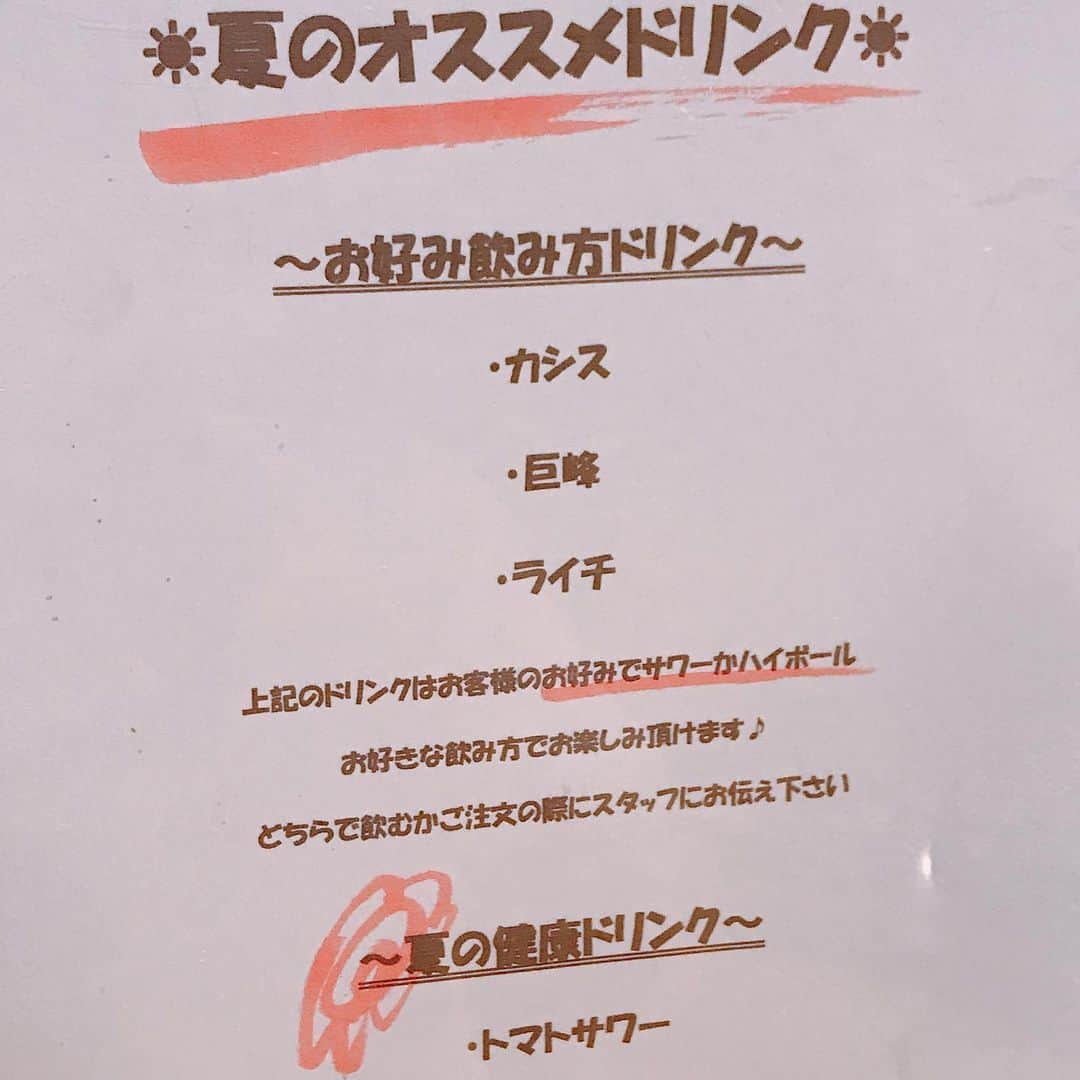 ☀夏のオススメドリンク☀
～お好み飲み方ドリンク～
・カシス
・巨峰
・ライチ
上記のドリンクはお客様のお好みでサワーかハイボール
お好きな飲み方でお楽しみ頂けます♪
どちらで飲むかご注文の際にスタッフにお伝え下さい
～夏の健康ドリンク～
・トマトサワー